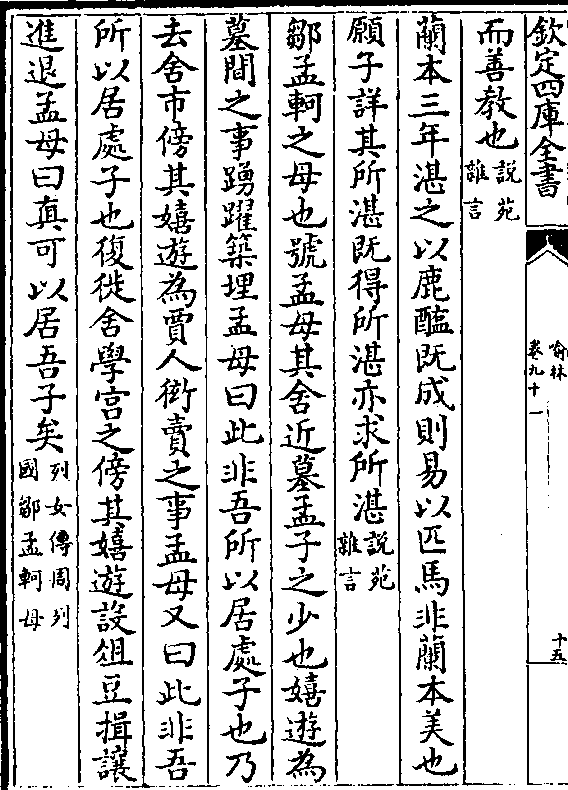 欽定四庫全書
喻林
卷九十一
十五
而善教也說苑
雜言
蘭本三年湛之以鹿醢既成則易以匹馬非蘭本美也
願子詳其所湛既得所湛亦求所湛說苑
雜言
鄒孟軻之母也號孟母其舍近墓孟子之少也嬉遊為
墓間之事踴躍築埋孟母曰此非吾所以居處子也乃
去舍市傍其嬉遊為賈人衒賣之事孟母又曰此非吾
所以居處子也復徙舍學宮之傍其嬉遊設俎豆揖讓
進退孟母曰真可以居吾子矣列女傳周列
國鄒孟軻母